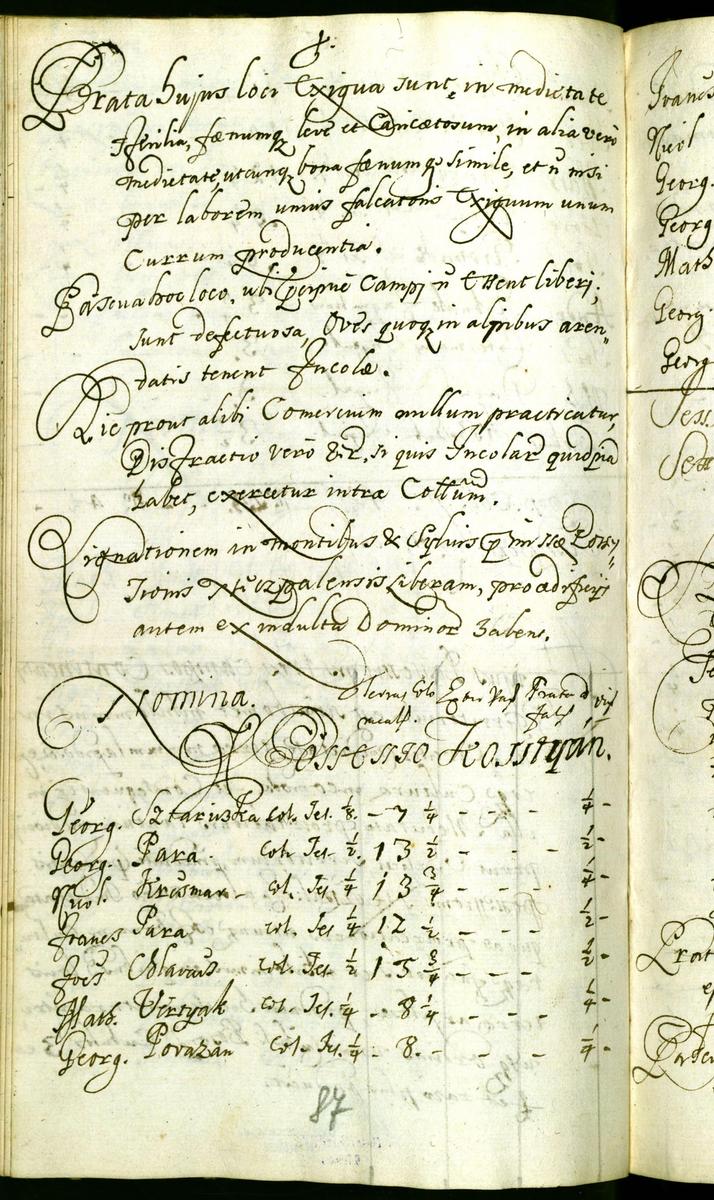 8.
Prata hujus loci Exigua sunt, in medietate
sterilia, fænumq leve et Caricetosum, in alia verò
medietate, utcunq bona fænumq simile, et ñ nisi
per laborem unius falcatoris Exiguum unum
Currum producentia.
Pascua hoc loco, ubi Campi ñ Essent liberi,
sunt defectuosa, Oves quoq in alpibus aren„
datis tenent Incolæ.
Hic prout alibi Comercium nullum practicatur,
Distractio verò si quis Incolar quidpia
habet, exercetur intra Cottum.
Lignationem in montibus & Sylvis
liberam, pro ædificijs
autem ex indultu Dominor habent.
Nomina. Terras Colo Extir Prata
Possessio Kosstyán.
Georg. Sztariuszka col. Ses. 1/8. – 7 1/4 – – – 1/4 –
Georg. Para. col. Ses. 1/2. 13 1/2 – – – 1/2 –
Nicol. Krismar col. Ses. 1/4 13 3/4 – – – 1/4 –
Francs Para col. Ses. 1/4 12 1/2 – – – 1/2 –
Joēs col. Ses. 1/2 15 3/4 – – – 1/2 –
Math. Vrtyak col. Ses. 1/4 – 8 1/4 – – – 1/4 –
Georg. Povazán col. Ses. 1/4 – 8. – – – – 1/4 –
87
Francs
Nicol
Georg.
Georg
Math
Georg.
Georg
Sess
Prat